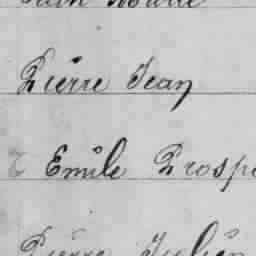 Pierre Jean
Emile Prospe
Pierre Julien